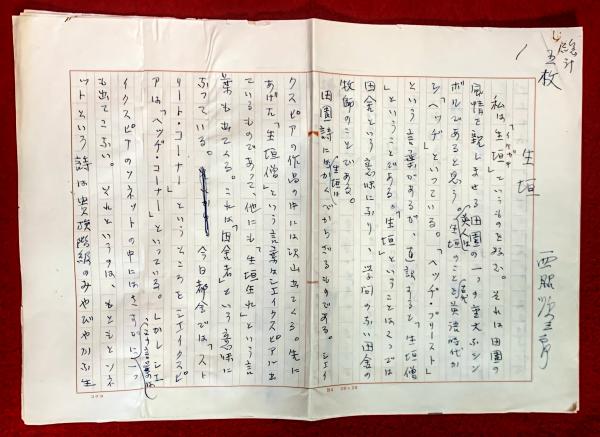 総計
五枚
1
生垣
西脇順三郎
私は「生垣」というものを好む。それは田園の
イケガキ
風情を親しませる田園の一つの重大なシン
ボルであると思う。「生垣」のことを英語時代か
英人は
ら「ヘッヂ」といっている。「ヘッヂ・プリースト」
という言葉があるが、直訳すると「生垣僧
」ということである。「生垣」ということはここでは
田舎という意味になり、学問のない田舎の
牧師のことである。
田園詩には欠くべからざるものである。シェイ
生垣は
クスピアの作品の中には沢山出てくる。先に
あげた「生垣僧」という言葉もシェイクスピアに出
ているものであって他にも「生垣生れ」という言
葉も出てくる。これは「田舎者」という意味に
なっている。今日都会では「スト
リート・コーナー」というところをシェイクスピ
アは「ヘッヂ・コーナー」といっている。しかしシェ
イクスピアのソネットの中にはさすがに一つ
も出てこない。それというのは、もともとソネ
ットという詩は貴族階級のみやびやかな生
B4 20×20